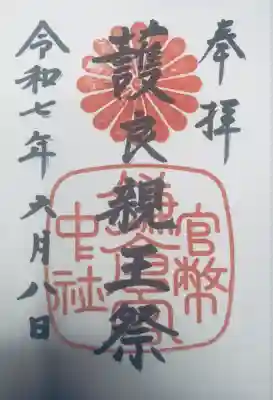 奉拝
護良親王祭
官幣
鎌倉宮
中社
令和七年六月八日